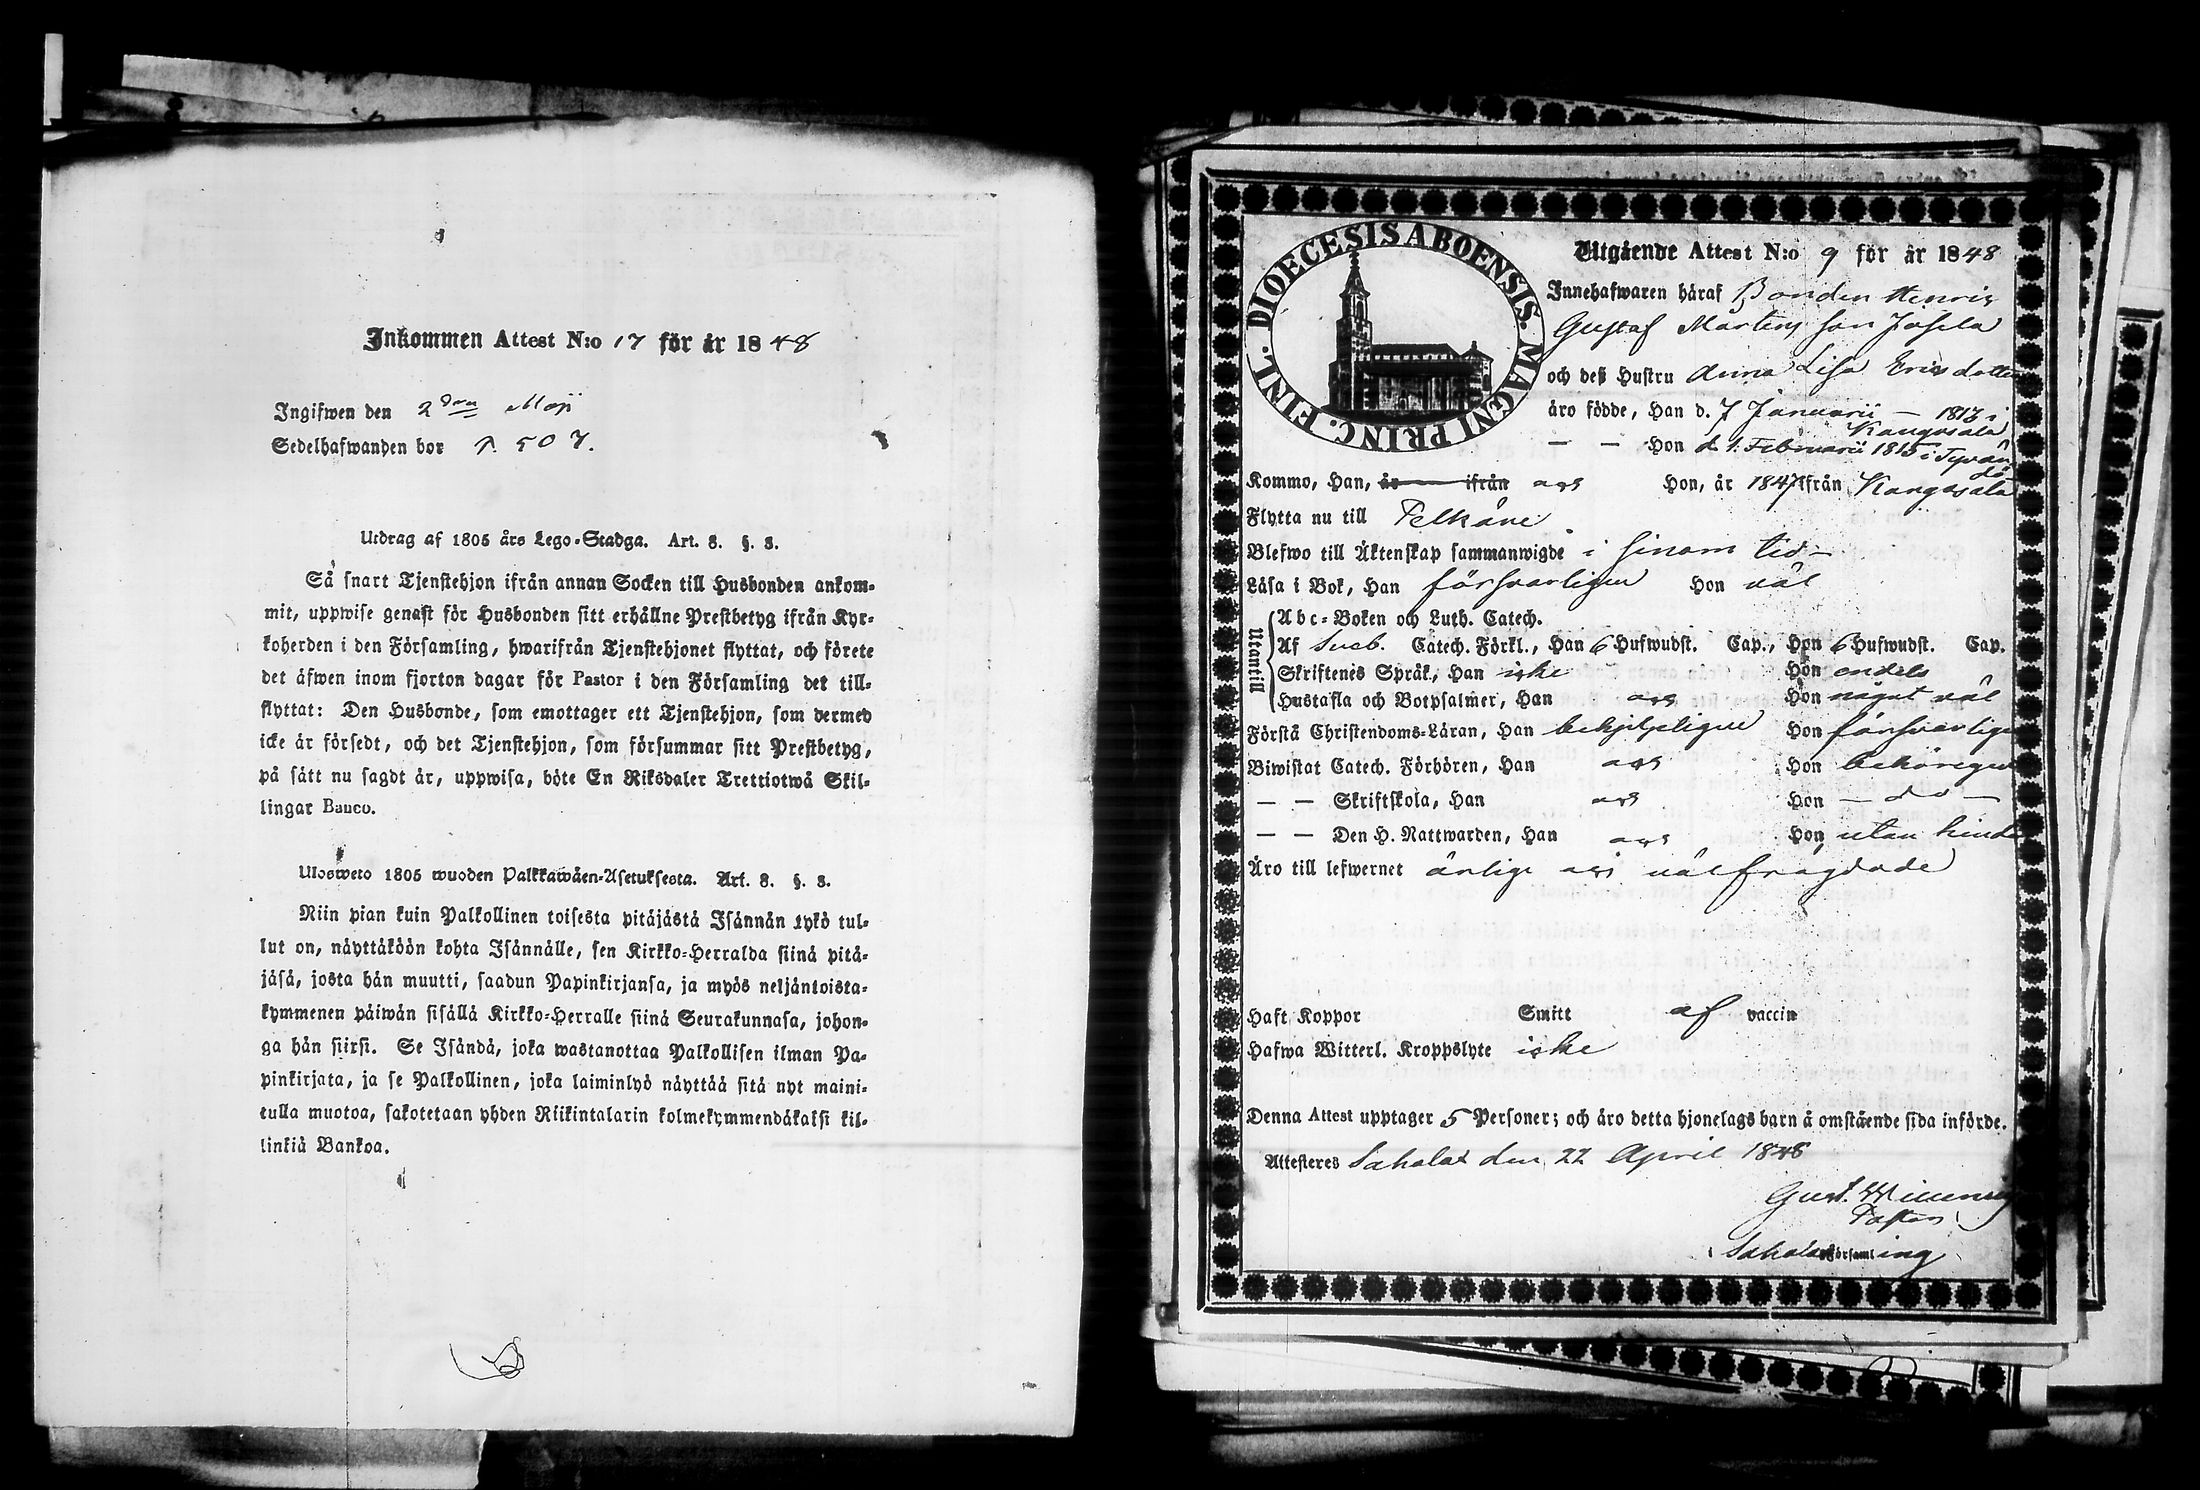 Inkommen Attest N:o 17 för år 1848
Ingifwen den 2dra Maji
Sedelhafwanden bor p. 507.
Utdrag af 1805 års Lego-Stadga. Art. 8. §. 3.
Så snart Tjenstehjon ifrån annan Socken till Husbonden ankom-
mit, uppwise genast för Husbonden sitt erhållne Prestbetyg ifrån Kyr-
koherden i den Församling, hwarifrån Tjenstehjonet flyttat, och förete
det äfwen inom fjorton dagar för Pastor i den Församling det till-
flyttat: Den Husbonde, som emottager ett Tjenstehjon, som dermed
icke är försedt, och det Tjenstehjon, som försummar sitt Prestbetyg,
på sätt nu sagdt är, uppwisa, böte En Riksdaler Trettiotwå Skil-
lingar Banco.
Ulosweto 1805 wuoden Palkkawäen-Asetuksesta. Art. 8. §. 3.
Niin pian kuin Palkollinen toisesta pitäjästä Isännän tykö tul-
lut on, näyttäköön kohta Isännälle, sen Kirkko-Herralda siinä pitä-
jäsä, josta hän muutti, saadun Papinkirjansa, ja myös neljäntoista-
kymmenen päiwän sisällä Kirkko-Herralle siinä Seurakunnasa, johon-
ga hän siirsi. Se Isändä, joka wastanottaa Palkollisen ilman Pa-
pinkirjata, ja se Palkollinen, joka laiminlyö näyttää sitä nyt maini-
tulla muotoa, sakotetaan yhden Riikintalarin kolmekymmendäkaksi kil-
linkiä Bankoa.
DIOECESIS ABOENSIS. MAGNI PRINC. FINL.
Utgående Attest N:o 9 för år 1848
Innehafwaren häraf Bonden Henric
Gustaf Mårtens son Josela
och deß Hustru Anna Lisa Ericsdotter
äro födde, Han d. 7 Januarii — 1813 i
Kangasala
— — Hon d. 1. Februarii 1815 i Tyrvän
dö
Kommo, Han, år ifrån och Hon, år 1847 ifrån Kangasala
Flytta nu till Pelkäne
Blefwo till Äktenskap sammanwigde i sinom tid —
Läsa i Bok, Han försvarligen Hon väl
Utantill
Abc-Boken och Luth. Catech.
Af Sveb. Catech. Förkl., Han 6 Hufwudst. Cap., Hon 6 Hufwudst. Cap.
Skriftenes Språk, Han icke Hon endels
Hustafla och Botpsalmer, Han och Hon något väl
Förstå Christendoms-Läran, Han behjelpligen Hon försvarligen
Biwistat Catech. Förhören, Han och Hon behörigen
— — Skriftskola, Han och Hon — do —
— — Den H. Nattwarden, Han och Hon utan hinder
Äro till lefwernet ärlige och välfrägdade
Haft Koppor Smitt af vaccin
Hafwa Witterl. Kroppslyte icke
Denna Attest upptager 5 Personer; och äro detta hjonelags barn å omstående sida införde.
Attesteres Sahalax den 22 April 1848
Gust.
Pastor
i Sahalax Församling